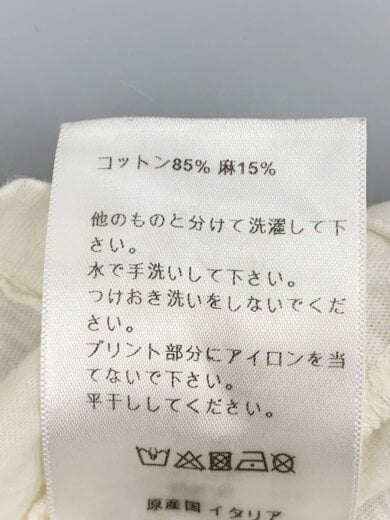 コットン85% 麻15%
他のものと分けて洗濯して下
さい。
水で手洗いして下さい。
つけおき洗いをしないでくだ
さい。
プリント部分にアイロンを当
てないで下さい。
平干ししてください。
原産国 イタリア